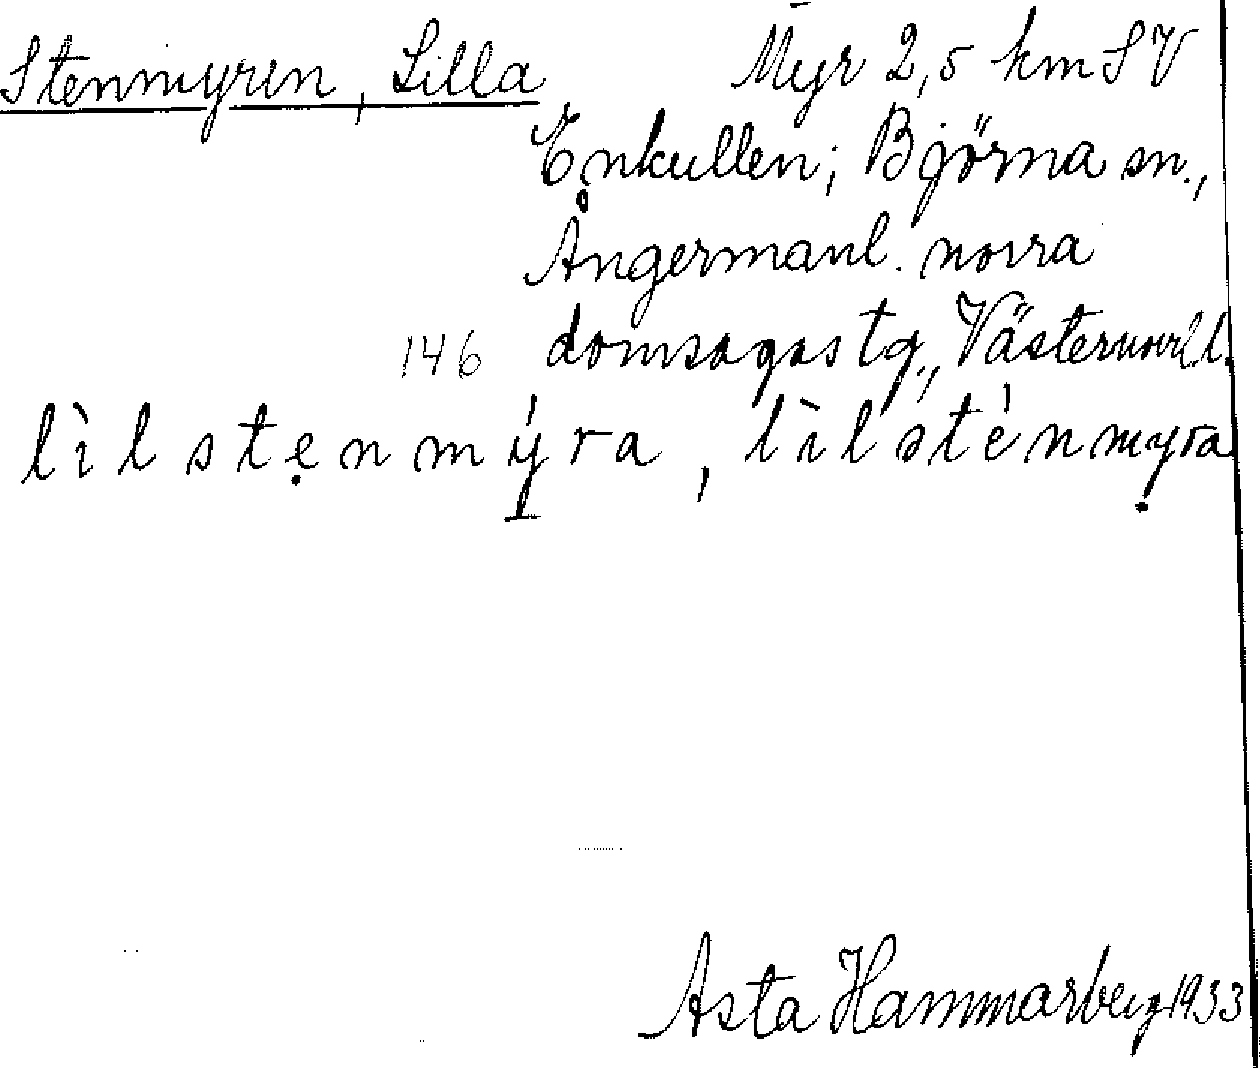 Stenmyren, Lilla Myr 2,5 km SV
Enkullen; Björna sn.,
Ångermanl. norra
146 domsagas tg., Västernorrl l.
lìlstẹnmýra, lìlsténmyra
Asta Hammarberg 1933